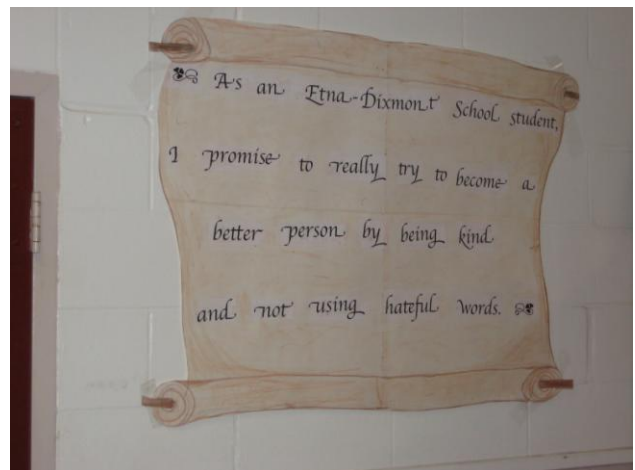 As an Etna-Dixmont School student,
I promise to really try to become a
better person by being kind
and not using hateful words.